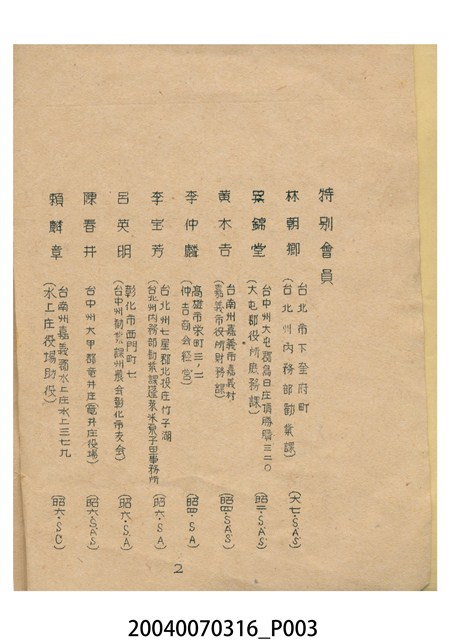 特別會員
林朝鄉 台北市下奎府町
(台北州内務部勸業課) (大七・SAS)
吳錦堂 台中州大屯郡烏日庄頂勝䝨三二〇
(大屯郡役所庶務課) (昭二・SAS)
黃木吉 台南州嘉義市嘉義村
(嘉義市役所財務課) (昭四・SAS)
李仲麟 高雄市栄町三ノ二
(仲吉商会経営) (昭四・SA)
李宝芳 台北州七星郡北投庄竹子湖
(台北州内務部勸業課蓬萊米原子田事務所 (昭六・SA)
呂英明 彰化市西門町七
(台中州勸業課州農会彰化市支会) (昭六・SA)
陳春井 台中州大甲郡竜井庄(竜井庄役場) (昭六・SAS)
賴麟章 台南州嘉義郡水上庄水上三七九
(水上庄役場助役) (昭六・SC)
2
20040070316_P003